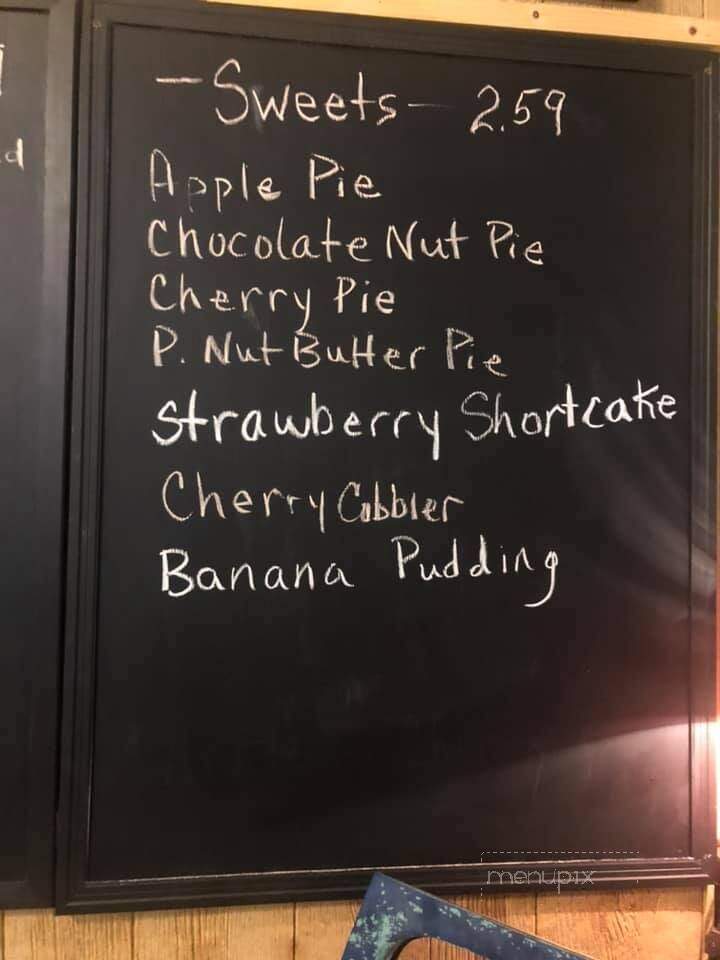 d
- Sweets - 2.59
Apple Pie
Chocolate Nut Pie
Cherry Pie
P. Nut Butter Pie
Strawberry Shortcake
Cherry Cobbler
Banana Pudding
menupix